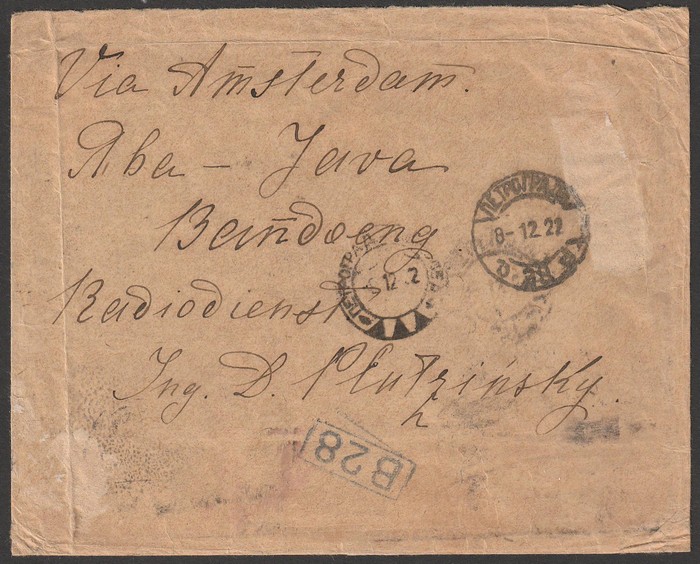 Via Amsterdam.
Ява – Java
Bandoeng
ПЕТРОГРАД
8-12.22
ПЕТРОГРАД
12
Radiodienst
Ing. D. Plutzinsky.
B28